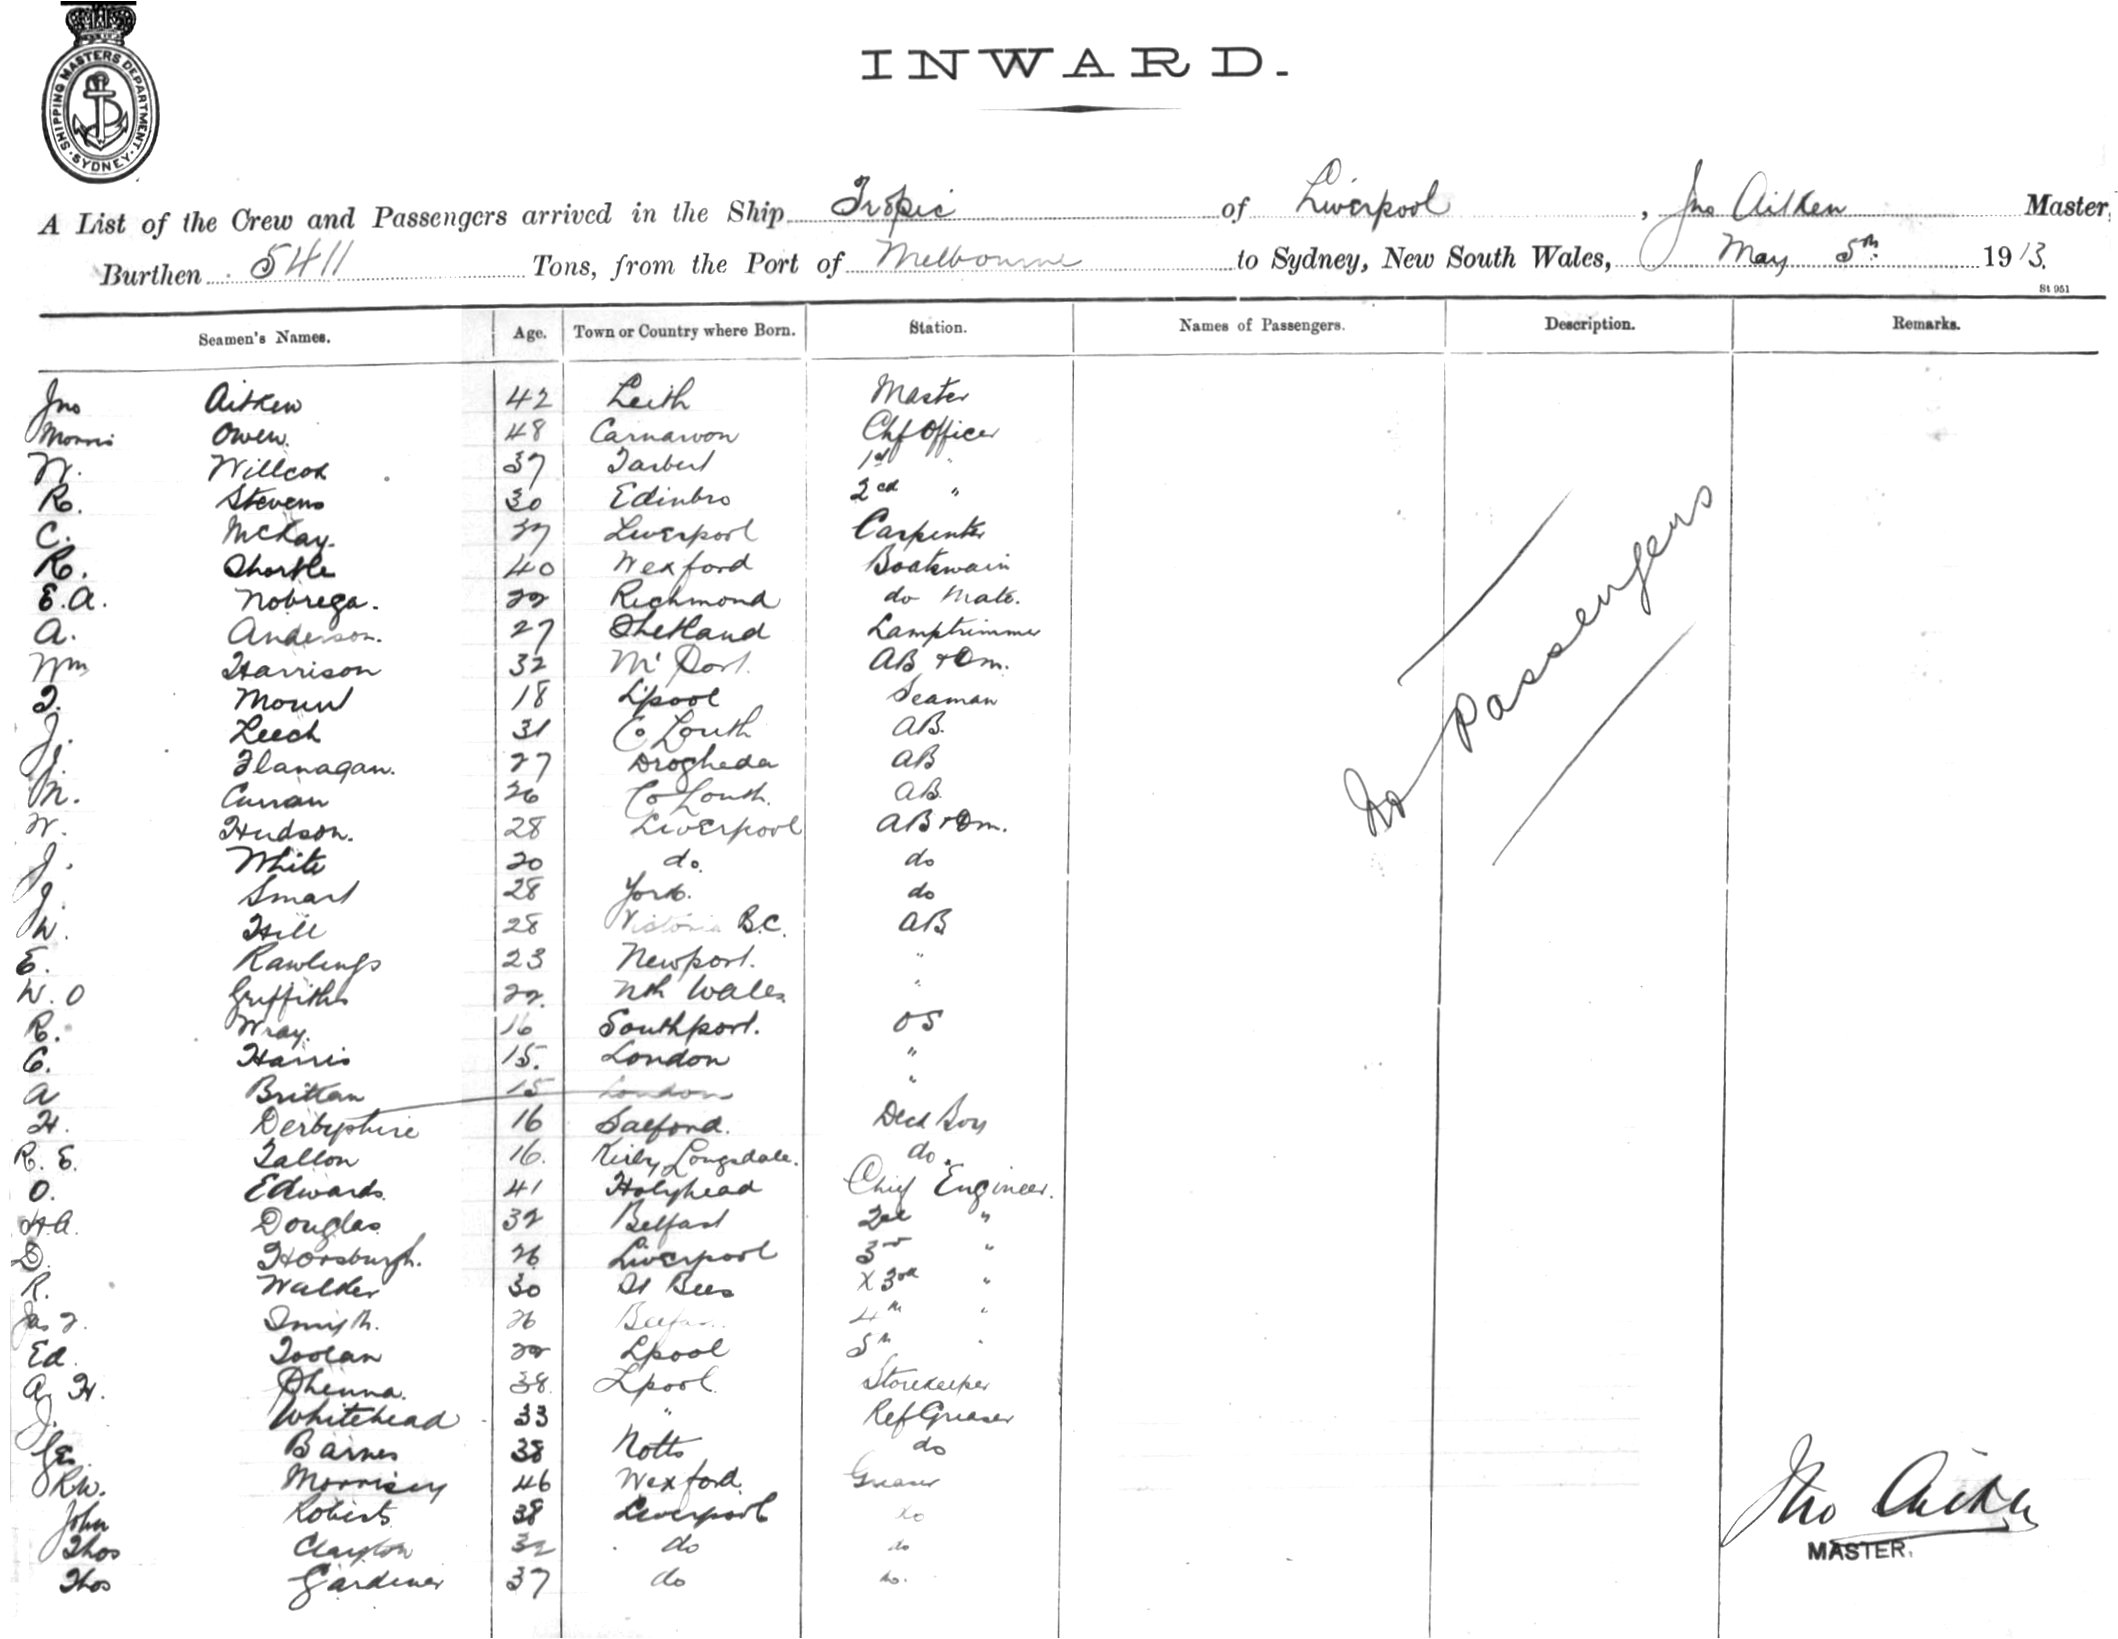 SHIPPING MASTERS DEPARTMENT · SYDNEY ·
INWARD.
A List of the Crew and Passengers arrived in the Ship Tropic of Liverpool, Jno Aitken Master,
Burthen 5411 Tons, from the Port of Melbourne to Sydney, New South Wales, May 5th 1913.
St 951
Seamen's Names. Age. Town or Country where Born. Station. Names of Passengers. Description. Remarks.
Jno Aitken 42 Leith Master
Morris Owen. 48 Carnarvon Chf Officer
W. Willcox 37 Tarbert 1st "
R. Stevens 30 Edinbro 2nd "
C. McKay. 37 Liverpool Carpenter
R. Shortle 40 Wexford Boatswain
E.A. Nobrega. 22 Richmond do Mate.
A. Anderson. 27 Shetland Lamptrimmer
Wm Harrison 32 AB
18 L'pool Seaman
J. Leech 31 Co Louth AB.
J. Flanagan. 27 Drogheda AB
M. Curran 26 Co Louth. AB.
W. Hudson. 28 Liverpool AB
J. White 20 do. do
J. Smart 28 York. do
W. Hill 28 Victoria B.C. AB
E. Rawlings 23 Newport. "
W. O Griffiths 22. Nth Wales "
R. Wray. 16 Southport. OS
C. Harris 15. London "
A Brittan 15 London "
H. Derbyshire 16 Salford. Deck Boy
R. E. Tallon 16. Kirby Longsdale. do.
O. Edwards. 41 Holyhead Chief Engineer.
H.A. Douglas 32 Belfast 2nd "
D. Horsburgh. 26 Liverpool 3rd "
R. Walker 30 St Bees X 3rd "
Jas Smyth. 26 Belfast 4th "
Ed. Toolan 22 Lpool 5th "
A. H. Phenna. 38. Lpool. Storekeeper
J. Whitehead 33 " Ref Greaser
Geo. Barnes 38 Notts do
R.W. Morrisey 46 Wexford Greaser
John Roberts 38 Liverpool do
Thos Clayton 32 do do
Thos Gardiner 37 do do.
No Passengers
Jno Aitken
MASTER.